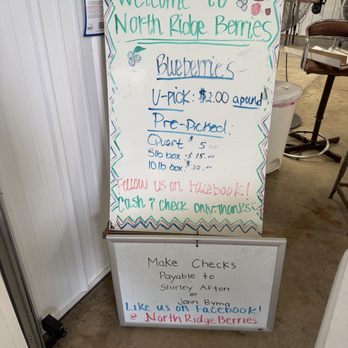 Welcome to
North Ridge Berries
Blueberries
U-pick: $2.00 a pound
Pre-Picked:
Quart $5.00
5lb box - $15.00
10lb box: $30.00
Follow us on Facebook!
Cash & check only-thanks!
Make Checks
Payable to
Shirley Afton
or
Byrna
Like us on Facebook!
@ North Ridge Berries